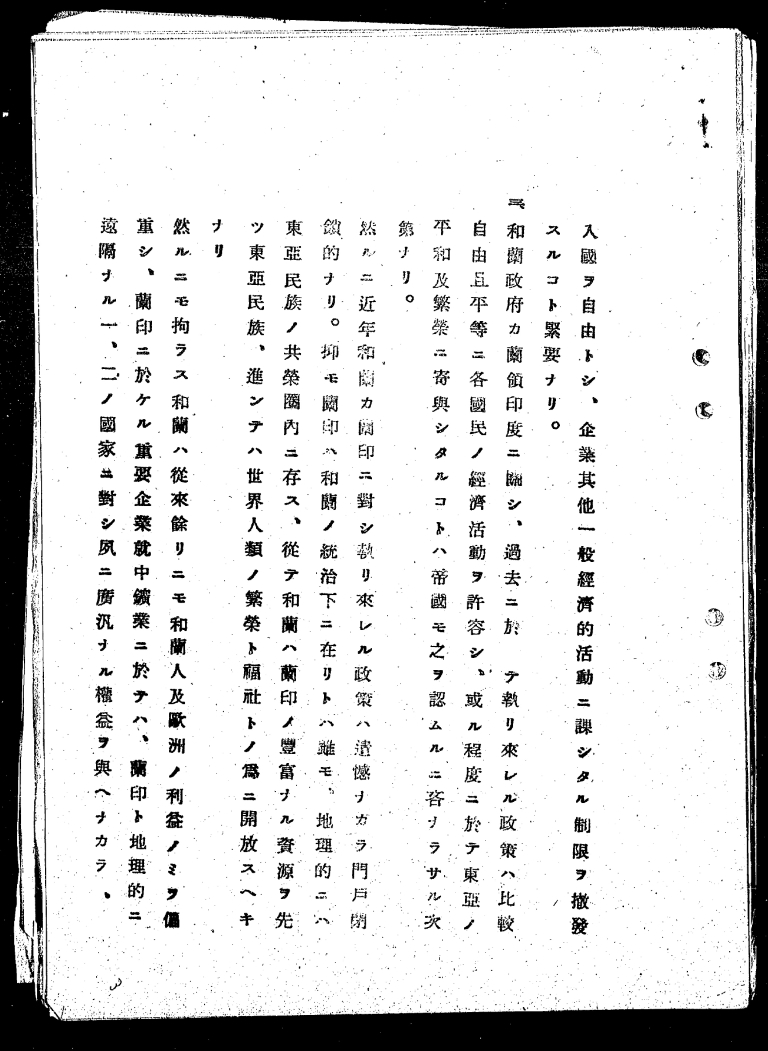 入國ヲ自由トシ、企業其他一般經濟的活動ニ課シタル制限ヲ撤發
スルコト緊要ナリ。
三、和蘭政府カ蘭領印度ニ關シ、過去ニ於テ執リ來レル政策ハ比較
自由且平等ニ各國民ノ經濟活動ヲ許容シ、或ル程度ニ於テ東亞ノ
平和及繁榮ニ寄與シタルコトハ帝國モ之ヲ認ムルニ吝ナラサル次
第ナリ。
然ルニ近年和蘭カ蘭印ニ對シ執リ來レル政策ハ遺憾ナカラ門戸閉
鎖的ナリ。抑モ蘭印ハ和蘭ノ統治下ニ在リトハ雖モ、地理的ニハ
東亞民族ノ共榮圈內ニ存ス、從テ和蘭ハ蘭印ノ豐富ナル資源ヲ先
ツ東亞民族、進ンテハ世界人類ノ繁榮ト福祉トノ爲ニ開放スヘキ
ナリ
然ルニモ拘ラス和蘭ハ從來餘リニモ和蘭人及歐洲ノ利益ノミヲ偏
重シ、蘭印ニ於ケル重要企業就中鑛業ニ於テハ、蘭印ト地理的ニ
遠隔ナル一、二ノ國家ニ對シ夙ニ廣汎ナル權益ヲ與ヘナカラ、